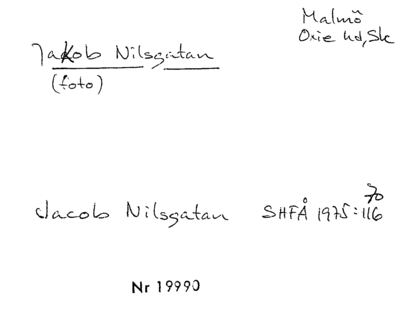 Malmö
Oxie hd, Sk
Jakob Nilsgatan
(foto)
70
Jacob Nilsgatan SHFÅ 1975:116
Nr 19990